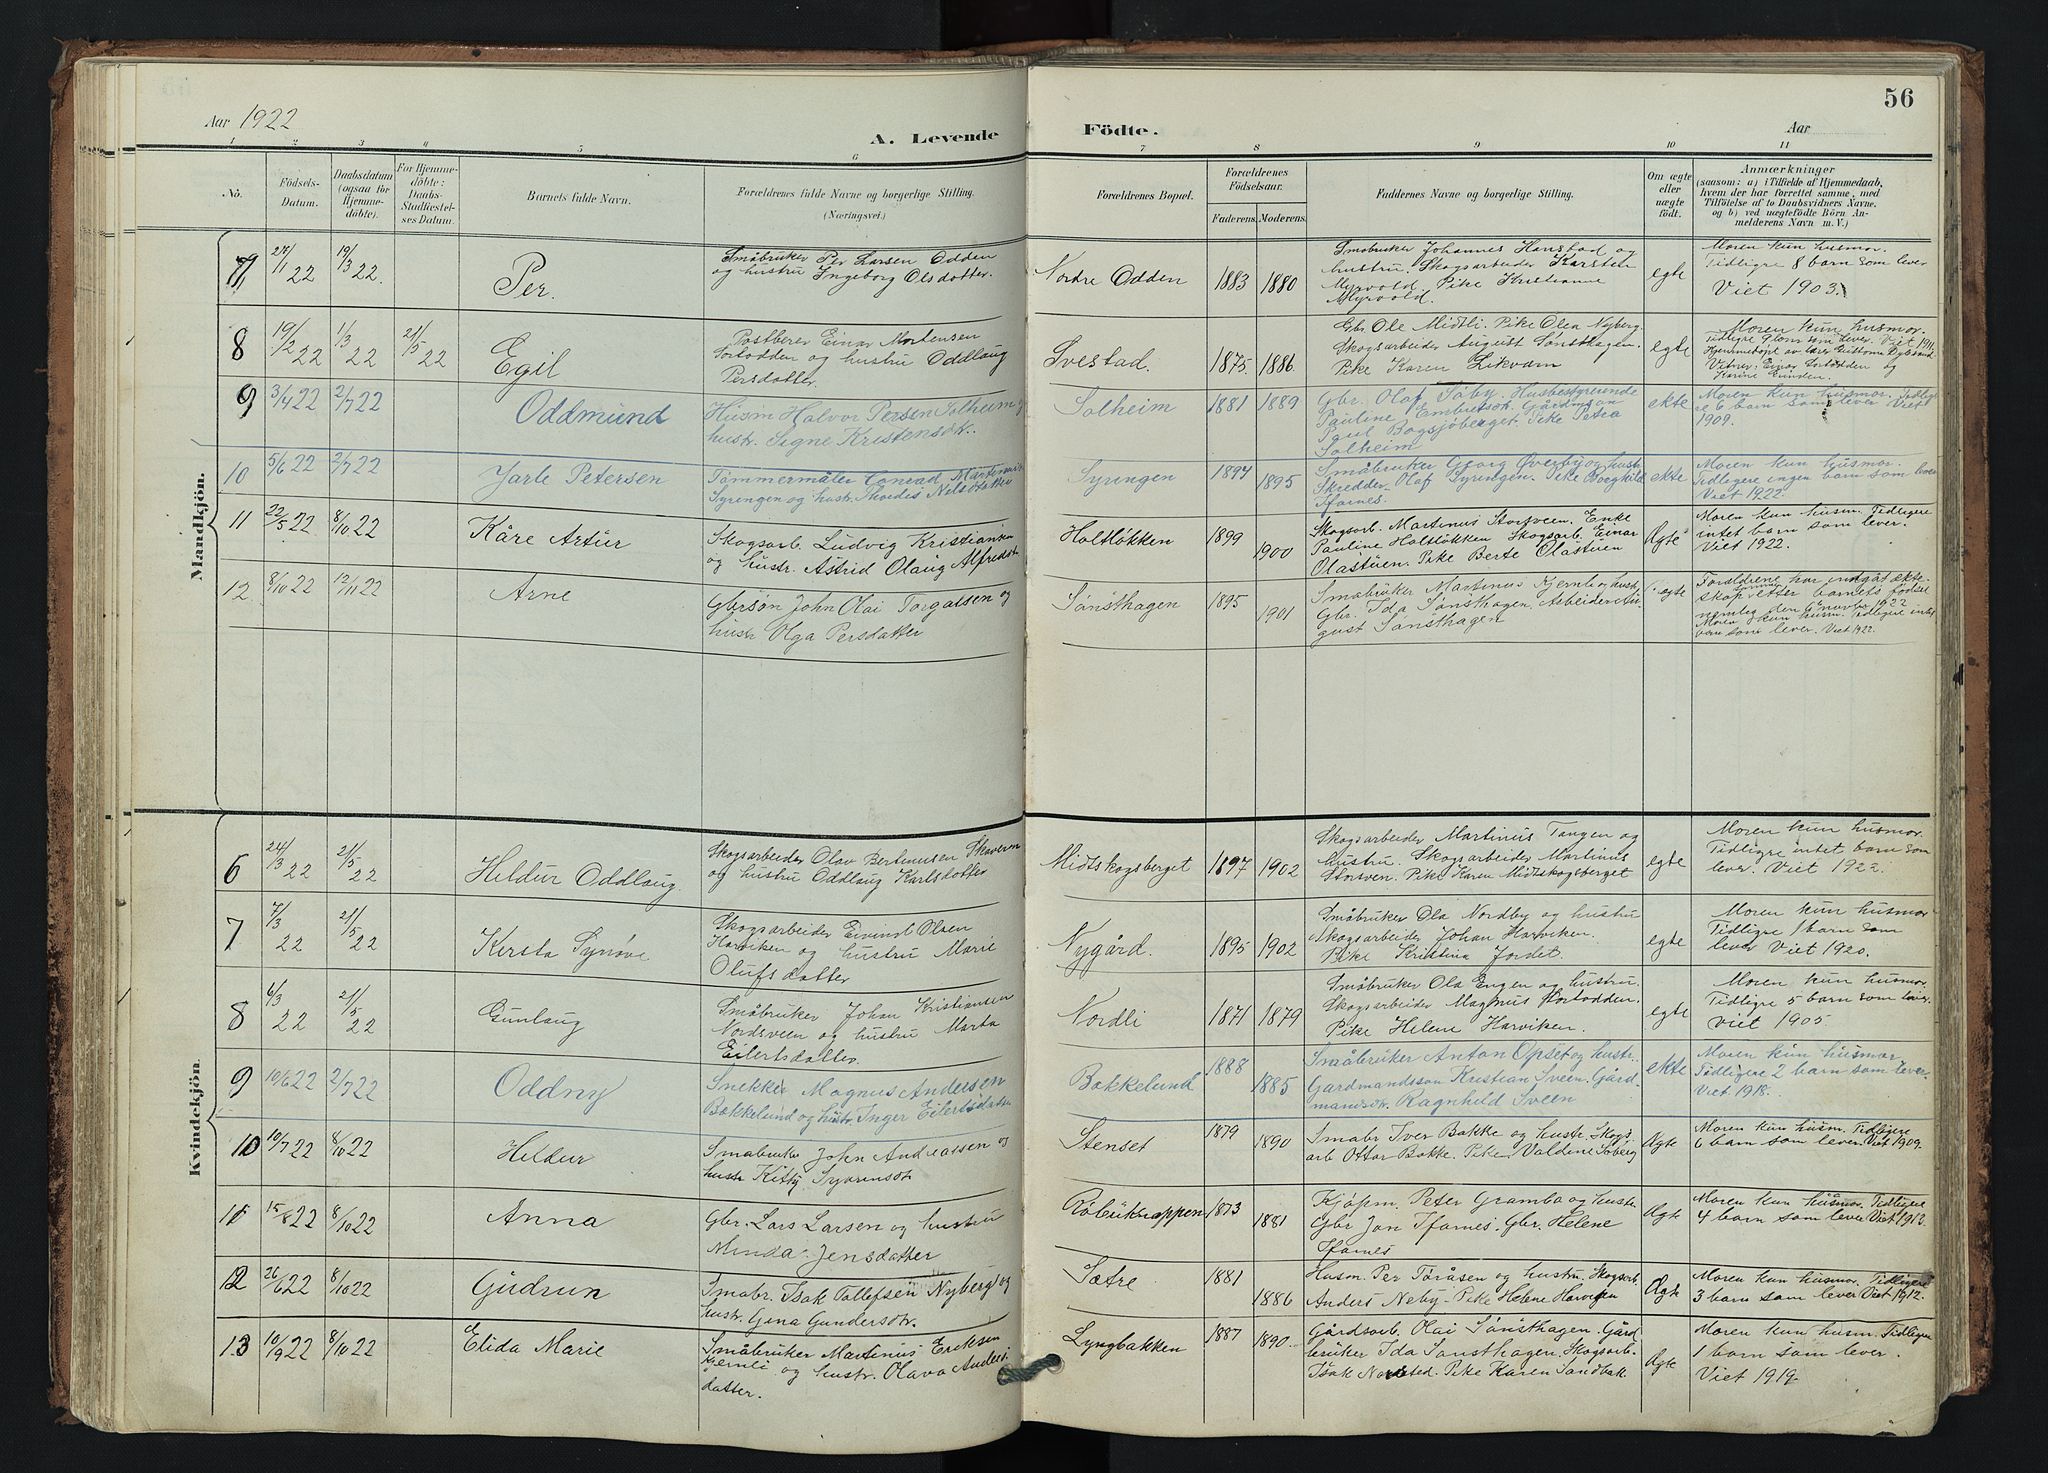 56
Aar 1922
A. Levende Födte.
Aar
1 2 3 4 5 6 7 8 9 10 11
No.
Födsels-Datum.
Daabsdatum (ogsaa for Hjemme-döbte).
For Hjemme-döbte: Daabs-Stadfæstel-ses Datum.
Barnets fulde Navn.
Forældrenes fulde Navne og borgerlige Stilling.
(Næringsvei.)
Forældrenes Bopæl.
Forældrenes Födselsaar.
Faderens. Moderens.
Faddernes Navne og borgerlige Stilling.
Om ægte eller uægte födt.
Anmærkninger
(saasom: a) i Tilfælde af Hjemmedaab,
hvem der har forrettet samme, med
Tilföielse af to Daabsvidners Navne,
og b) ved uægtefödte Börn An-
melderens Navn m. V.)
Mandkjön.
7 27/11 22 19/3 22. Per.
Småbruker Per Larsen Odden
og hustru Ingeborg Olsdatter.
Nordre Odden 1883 1880
Småbruker Johannes Hanstad og
hustru. Skogsarbeider Karsten
Myrvold. Pike Kristianne
Myrvold.
egte
Moren kun husmor.
Tidligre 8 barn som lever
Viet 1903.
8 19/2 22 1/3 22 21/5 22 Egil
Postbærer Einar Mortensen
Sortodden og hustru Oddlaug
Persdatter.
Svestad. 1875. 1886
Gbr. Ole Midtli. Pike Olea Nyberg.
Skogsarbeider August Sønsthagen.
Pike Karen Likvam
egte
Moren kun husmor.
Tidligre som lever. Viet 1911.
Hjemmedøpt av lærer
Vitner: Einar Sortodden og
Karine
9 3/4 22 2/7 22 Oddmund
Husm Halvor Persen Solheim og
hustr. Signe Kristensdt.
Solheim 1881 1889
Gbr. Olaf Søby. Husbestyrerinde
Pauline Embretsdt. Gårdmson
Paul Bogsjøberget. Pike Petra
Solheim
ekte
Moren kun husmor. Tidlig-
re 6 barn som lever Viet
1909.
10 5/6 22 2/7 22 Jarle Petersen
Tømmermåler Conrad Martinus
Syringen og hustr. Thordis Nilsdatter
Syringen 1894 1895
Småbruker Georg Øverby og hustr.
Skredder Olaf Syringen. Pike Borghild
Ifarnes.
ekte
Moren kun husmor.
Tidligere ingen barn som lever
Viet 1922.
11 22/5 22 8/10 22 Kåre Artur
Skogsarb. Ludvig Kristiansen
og hustr. Astrid Olaug Alfredsdt.
Holtløkken 1899 1900
Skogsarb. Martinus Storsveen. Enke
Pauline Holtløkken. Skogsarb. Einar
Olastuen. Pike Berte Olastuen
Ægte
Moren kun husm. Tidligere
intet barn som lever.
Viet 1922.
12 8/10 22 12/11 22 Arne
Gbrsøn John Olai Torgalsen og
hustr Olga Persdatter
Sønsthagen 1895 1901
Småbruker Martinus Kjernli og hustr.
Gbr. Ida Sønsthagen. Arbeider Au-
gust Sønsthagen
Ægte
Forældrene har indgåt ekte-
skap efter barnets fødsel
nemlig den novbr. 1922
Moren kun husm. Tidligere intet
barn som lever. Viet 1922.
Kvindekjön
6 24/3 22 21/5 22 Heldur Oddlaug.
Skogsarbeider Olav Bertinusen Skaveren
og hustru Oddlaug Karlsdatter
Midtskogsberget 1897 1902
Skogsarbeider Martinus Tangen og
hustru. Skogsarbeider Martinus
Storsven. Pike Karen Midtskogsberget
egte
Moren kun husmor.
Tidligre intet barn som
lever. Viet 1922.
7 7/3 22 21/5 22 Kersta Synøve
Skogsarbeider Eivind Olsen
Harviken og hustru Marie
Olufsdatter
Nygård. 1895 1902
Småbruker Ola Nordby og hustru
Skogsarbeider Johan Harviken.
Pike Kristina Jordet.
egte
Moren kun husmor
Tidligre 1 barn som
lever Viet 1920.
8 6/3 22 21/5 22 Gunlaug
Småbruker Johan Kristiansen
Nordsveen og hustru Marta
Eilertsdatter
Nordli 1871 1879
Småbruker Ola Engen og hustru.
Skogsarbeider Magnus Sortodden.
Pike Helene Harviken.
egte
Moren kun husmor.
Tidligre 5 barn som lever.
Viet 1905.
9 10/6 22 2/7 22 Oddny
Snekker Magnus Andersen
Bakkelund og hustr. Inger Eilertsdatter
Bakkelund 1888 1885
Småbruker Anton Opset og hustr.
Gardmandsson Kristian Sveen. Gård-
mandsdt. Ragnhild Sveen
ekte
Moren kun husmor
Tidligere 2 barn som lever.
Viet 1918.
10 10/7 22 8/10 22 Heldur
Småbruker John Andreassen og
hustr Kitty Syversdt
Stenset 1879 1890
Småbr Iver Bakke og hustr. Skogs-
arb Ottar Bakke. Pike Valdine Søberg
Ægte
Moren kun husm. Tidligere
6 barn som lever. Viet 1909.
11 15/8 22 8/10 22 Anna
Gbr. Lars Larsen og hustru
Minda Jensdatter
Røbuksoppen 1873 1881
Kjøpm. Peter Grambo og hustr
Gbr Jon Ifarnes. Gbr. Helene
Ifarnes
Ægte
Moren kun husmor. Tidligere
4 barn som lever Viet 1912.
12 26/6 22 8/10 22 Gudrun
Småbr. Isak Tollefsen Nyberg og
hustr. Gina Gundersdt.
Sætre 1881 1886
Husm. Per Tøråsen og hustru. Skogsarb.
Anders Neby. Pike Helene Harviken
Ægte
Moren kun husmor. Tidligere
3 barn som lever Viet 1912.
13 10/9 22 8/10 22 Elida Marie
Småbruker Martinus Eriksen
Kjernli og hustr. Olava Anders-
datter.
Lyngbakken 1887 1890
Gårdsarb. Olai Sønsthagen. Gård
bruker Ida Sønsthagen. Skogsarb.
Isak Norsted. Pike Karen Sandbak
Ægte
Moren kun husm. Tidligere
1 barn som lever.
Viet 1919.